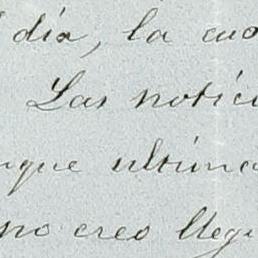 día, la cua
Las notici
nque ultima
no creo llegu